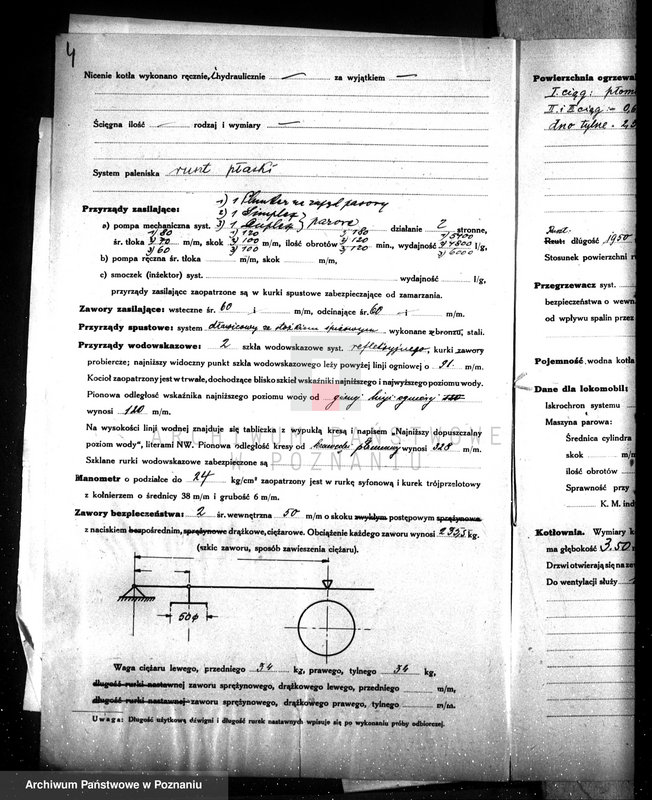 4
Nicenie kotła wykonano ręcznie, hydraulicznie — za wyjątkiem —
Ścięgna ilość — rodzaj i wymiary —
System paleniska ruszt płaski
Przyrządy zasilające:
1) 1
2) 1 Simplex
a) pompa mechaniczna syst. 3) 1 Duplex } parowe działanie 2 stronne,
1) 80 1) 120 1) 180 1) 5400
śr. tłoka 2) 70 m/m, skok 2) 100 m/m, ilość obrotów 2) 120 min., wydajność 2) 4800 l/g,
3) 60 3) 100 3) 120 3) 6000
b) pompa ręczna śr. tłoka m/m, skok m/m,
c) smoczek (inżektor) syst. wydajność l/g,
przyrządy zasilające zaopatrzone są w kurki spustowe zabezpieczające od zamarzania.
Zawory zasilające: wsteczne śr. 60 i m/m, odcinające śr. 60 i m/m.
Przyrządy spustowe: system dławicowy ze stożkiem spiżowym wykonane z bronzu, stali.
Przyrządy wodowskazowe: 2 szkła wodowskazowe syst. refleksyjnego, kurki zawory
probiercze; najniższy widoczny punkt szkła wodowskazowego leży powyżej linji ogniowej o 91. m/m.
Kocioł zaopatrzony jest w trwałe, dochodzące blisko szkieł wskaźniki najniższego i najwyższego poziomu wody.
Pionowa odległość wskaźnika najniższego poziomu wody od górnej linji ogniowej
wynosi 120 m/m.
Na wysokości linji wodnej znajduje się tabliczka z wypukłą kresą i napisem „Najniższy dopuszczalny
poziom wody", literami NW. Pionowa odległość kresy od krawędzi płomienicy wynosi 320 m/m.
Szklane rurki wodowskazowe zabezpieczone są
Manometr o podziałce do 24 kg/cm² zaopatrzony jest w rurkę syfonową i kurek trójprzelotowy
z kołnierzem o średnicy 38 m/m i grubość 6 m/m.
Zawory bezpieczeństwa: 2 śr. wewnętrzna 50 m/m o skoku zwykłym postępowym sprężynowe
z naciskiem bezpośrednim, sprężynowe drążkowe, ciężarowe. Obciążenie każdego zaworu wynosi 235,5 kg.
(szkic zaworu, sposób zawieszenia ciężaru).
50 ϕ
Waga ciężaru lewego, przedniego 34 kg, prawego, tylnego 34 kg,
długość rurki nastawnej zaworu sprężynowego, drążkowego lewego, przedniego m/m,
długość rurki nastawnej zaworu sprężynowego, drążkowego prawego, tylnego m/m.
Uwaga: Długość użytkową dźwigni i długość rurek nastawnych wpisuje się po wykonaniu próby odbiorczej.
Powierzchnia ogrzewal
I. ciąg:
II. i III. ciąg -
dno tylne. 2,5
Ruszt: długość 1950
Stosunek powierzchni r
Przegrzewacz syst.
bezpieczeństwa o wewn.
od wpływu spalin przez
Pojemność wodna kotła
Dane dla lokomobil:
Iskrochron systemu
Maszyna parowa:
Średnica cylindra
skok m/m
ilość obrotów
Sprawność przy
K. M. ind
Kotłownia. Wymiary k
ma głębokość 3.50
Drzwi otwierają się na ze
Do wentylacji służy
ARCHIWUM PAŃSTWOWE
W POZNANIU
Archiwum Państwowe w Poznaniu